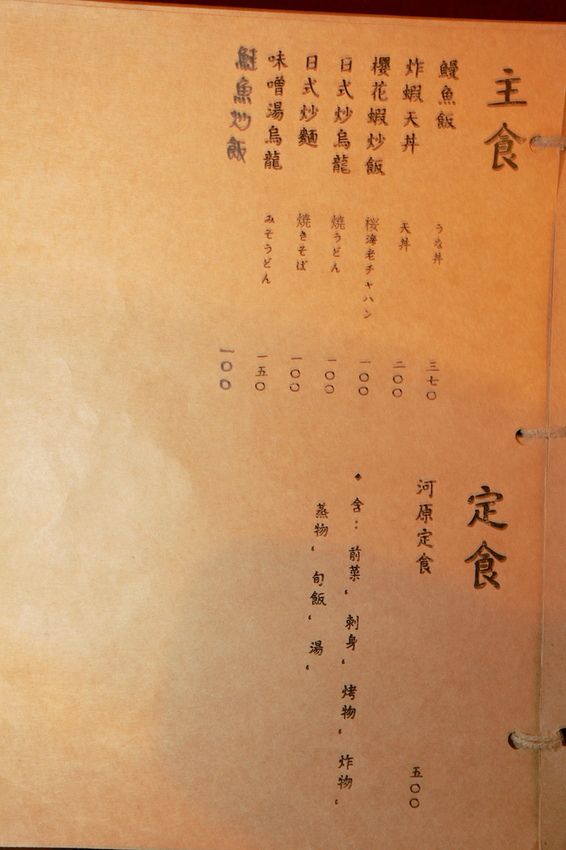 主食
鰻魚飯 うな丼 三七〇
炸蝦天丼 天丼 二〇〇
櫻花蝦炒飯 桜海老チャハン 一〇〇
日式炒烏龍 焼うどん 一〇〇
日式炒麵 焼きそば 一〇〇
味噌湯烏龍 みそうどん 一五〇
鮭魚炒飯 一〇〇
定食
河原定食 五〇〇
◆含：前菜、刺身、烤物、炸物、
蒸物、旬飯、湯、